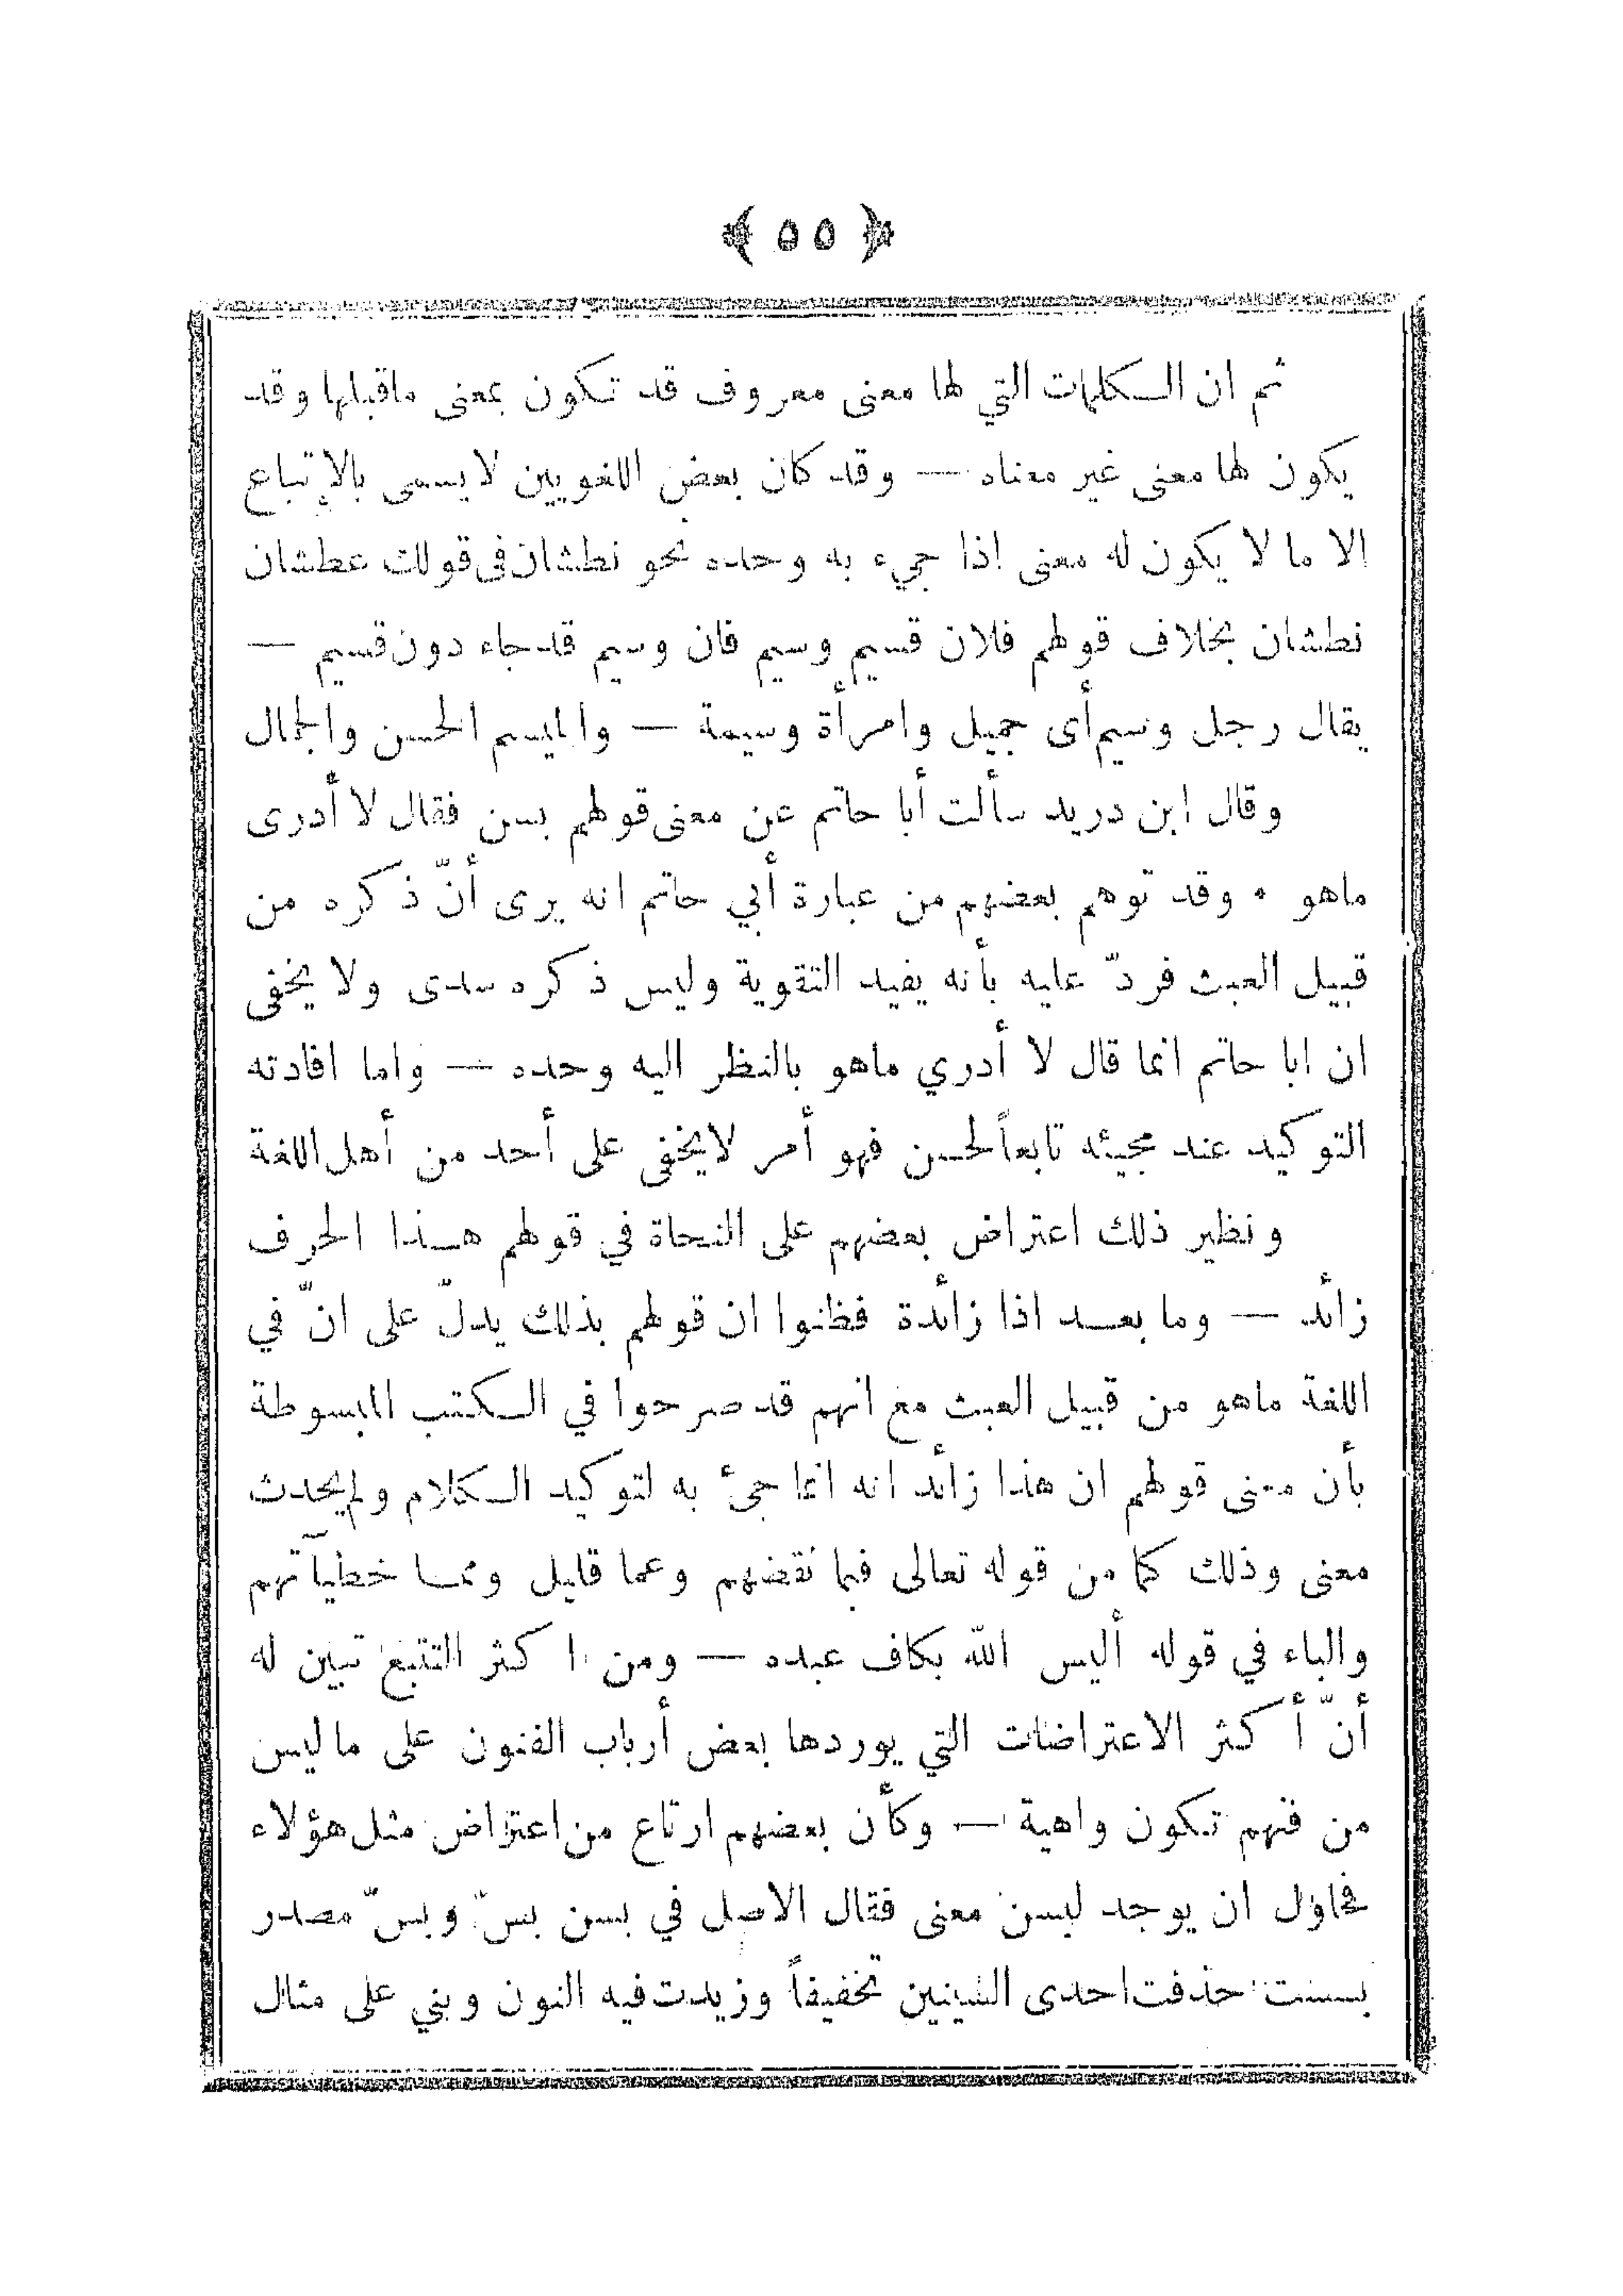 ﴿ ٥٥ ﴾
ثم ان الكلمات التي لها معنى معروف قد تكون بمعنى ماقبلها وقد
يكون لها معنى غير معناه — وقد كان بعض اللغويين لا يسمى بالإتباع
الا ما لا يكون له معنى اذا جيء به وحده نحو نطشان فى قولك عطشان
نطشان بخلاف قولهم فلان قسيم وسيم فان وسيم قد جاء دون قسيم —
يقال رجل وسيم أى جميل وامرأة وسيمة — والميسم الحسن والجمال
وقال ابن دريد سألت أبا حاتم عن معنى قولهم بسن فقال لا أدرى
ماهو • وقد توهم بعضهم من عبارة أبي حاتم انه يرى أنّ ذكره من
قبيل العبث فردّ عليه بأنه يفيد التقوية وليس ذكره سدى ولا يخفى
ان ابا حاتم انما قال لا أدري ماهو بالنظر اليه وحده — واما افادته
التوكيد عند مجيئه تابعاً لحسن فهو أمر لا يخفى على أحد من أهل اللغة
ونظير ذلك اعتراض بعضهم على النحاة في قولهم هذا الحرف
زائد — وما بعد اذا زائدة فظنوا ان قولهم بذلك يدلّ على انّ في
اللغة ماهو من قبيل العبث مع انهم قد صرحوا في الكتب المبسوطة
بأن معنى قولهم ان هذا زائد انه انما جئ به لتوكيد الكلام ولم يحدث
معنى وذلك كما من قوله تعالى فبما نقضهم وعما قليل ومما خطيآتهم
والباء في قوله أليس الله بكاف عبده — ومن اكثر التتبع تبين له
أنّ أكثر الاعتراضات التي يوردها بعض أرباب الفنون على ما ليس
من فنهم تكون واهية — وكأن بعضهم ارتاع من اعتراض مثل هؤلاء
فحاول ان يوجد لبسن معنى فقال الاصل في بسن بسّ وبسّ مصدر
بسست حذفت احدى السينين تخفيفاً وزيدت فيه النون وبني على مثال